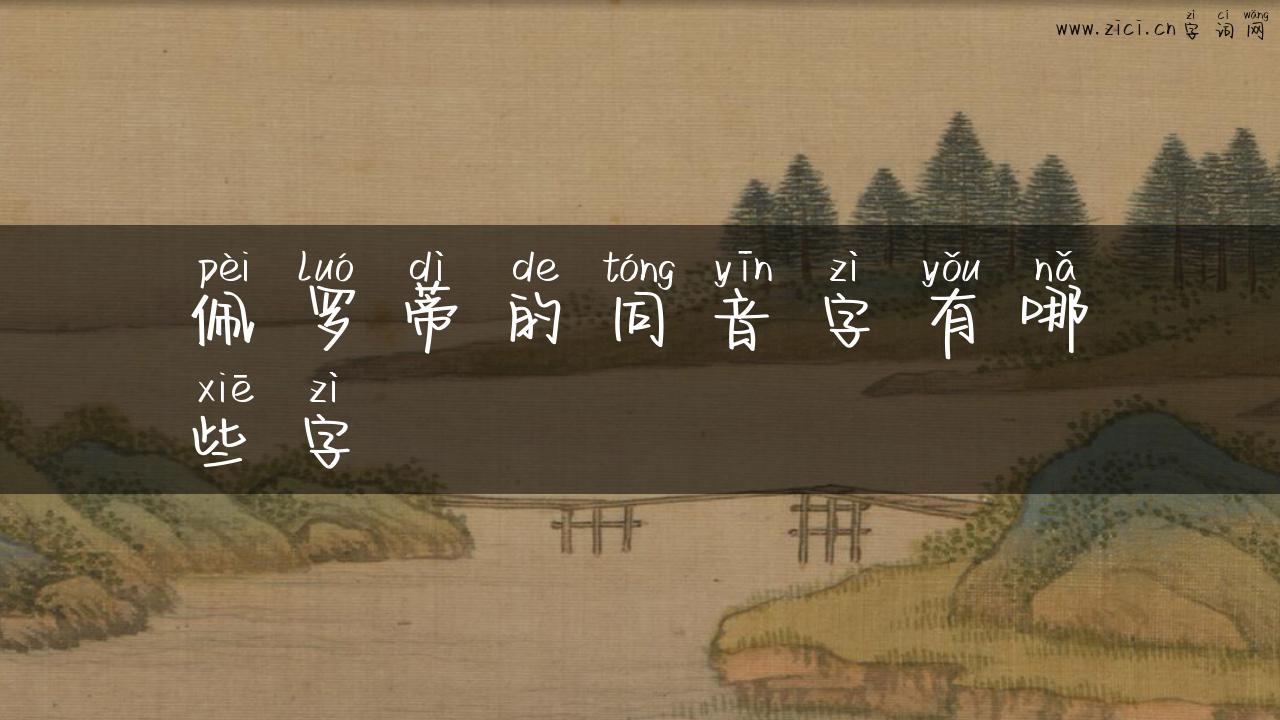 zì cí wǎng
www.zici.cn 字词网
pèi luó dì de tóng yīn zì yǒu nǎ
佩罗蒂的同音字有哪
xiē zì
些字